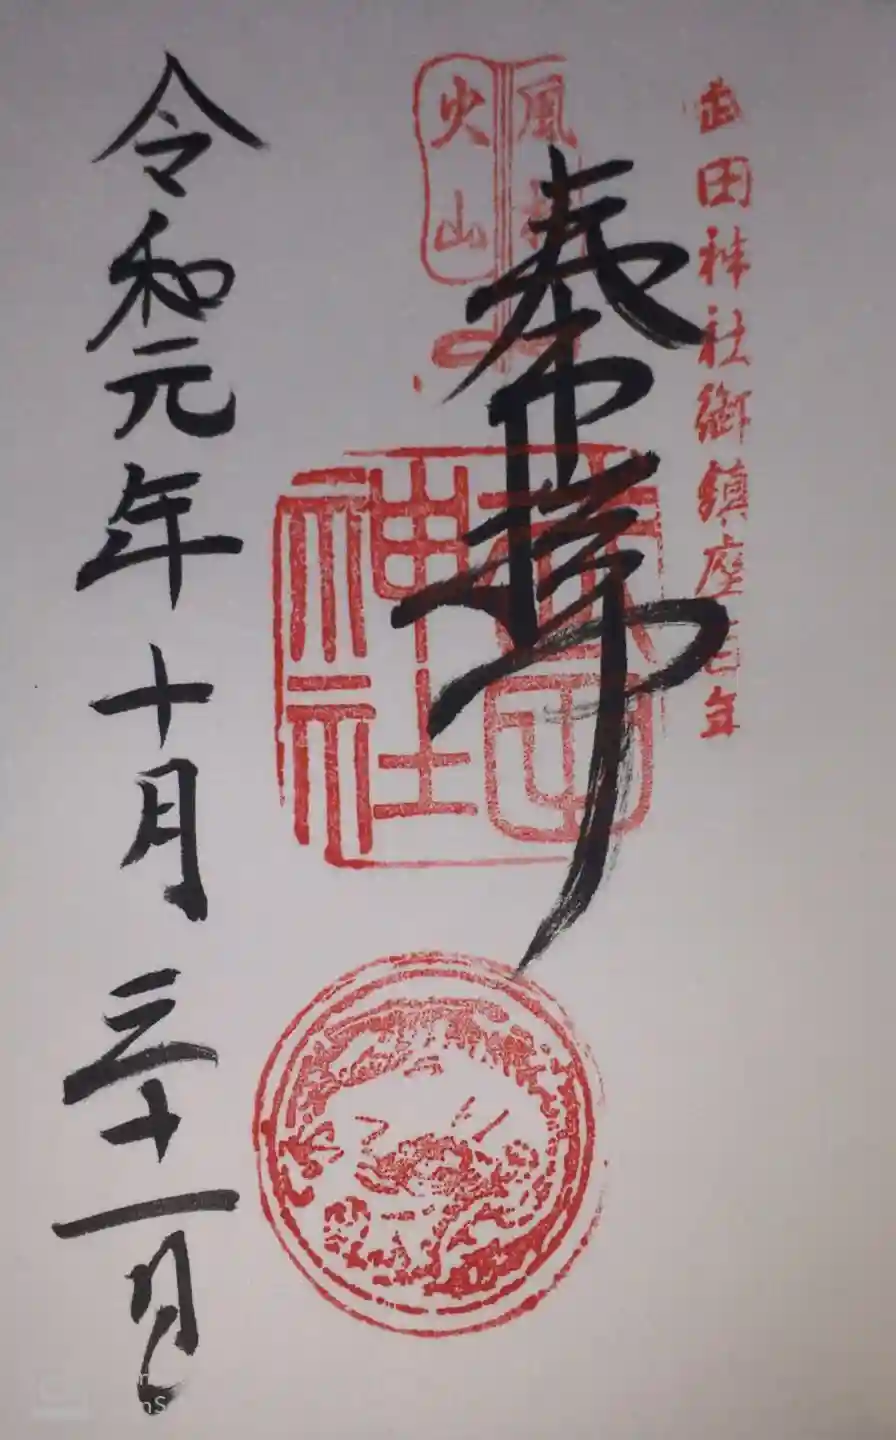 武田神社御鎮座百年
奉拝
風林
火山
武田
神社
令和元年十月三十一日